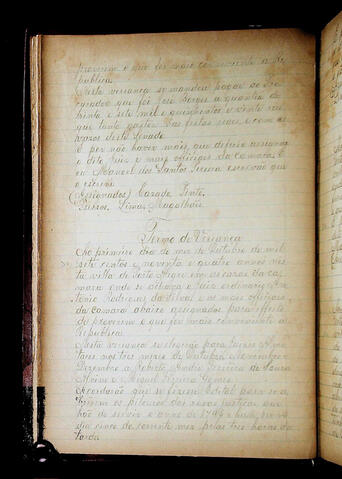 proverem o que for mais conveniente a Re-
publica.
Nesta veriança se mandou pagar ao Pro-
curador que foi José Borges a quantia de
trinta e sete mil e quinhentos e vinte reis
que tanto gastou nas festas reaes, e com os
prezos deste Senado.
E por não haver mais, que deferir assignou
o dito Juiz e mais officiaes da Camara. E
eu Manoel dos Santos Pereira escrivão que
o escrevi
(Assignados) Pinto.
Barros. Lima. Magalhães.
Termo de Veriança
Ao primeiro dia do mez de Outubro de mil
sete centos e noventa e quatro annos nes-
ta villa de Porto Alegre em as cazas da ca-
mara onde se achava o Juiz ordinario An-
tonio Rodrigues da Silva e os mais officiaes
da camara abaixo assignados para effeito
de proverem o que for mais conveniente a
Republica.
Nesta veriança se elegerão para Juizes Almo-
taces nos tres mezes de Outubro, Novembro e
Dezembro a Roberto André Ferreira de Souza
e Miguel Pereira Gomes.
Acordarão que se fizesse Edital para se a-
brirem os pilouros das novas justiças que
hão de servir o anno de 1795 e hade ser no
dia cinco do corrente mez pelas tres horas da
tarde.